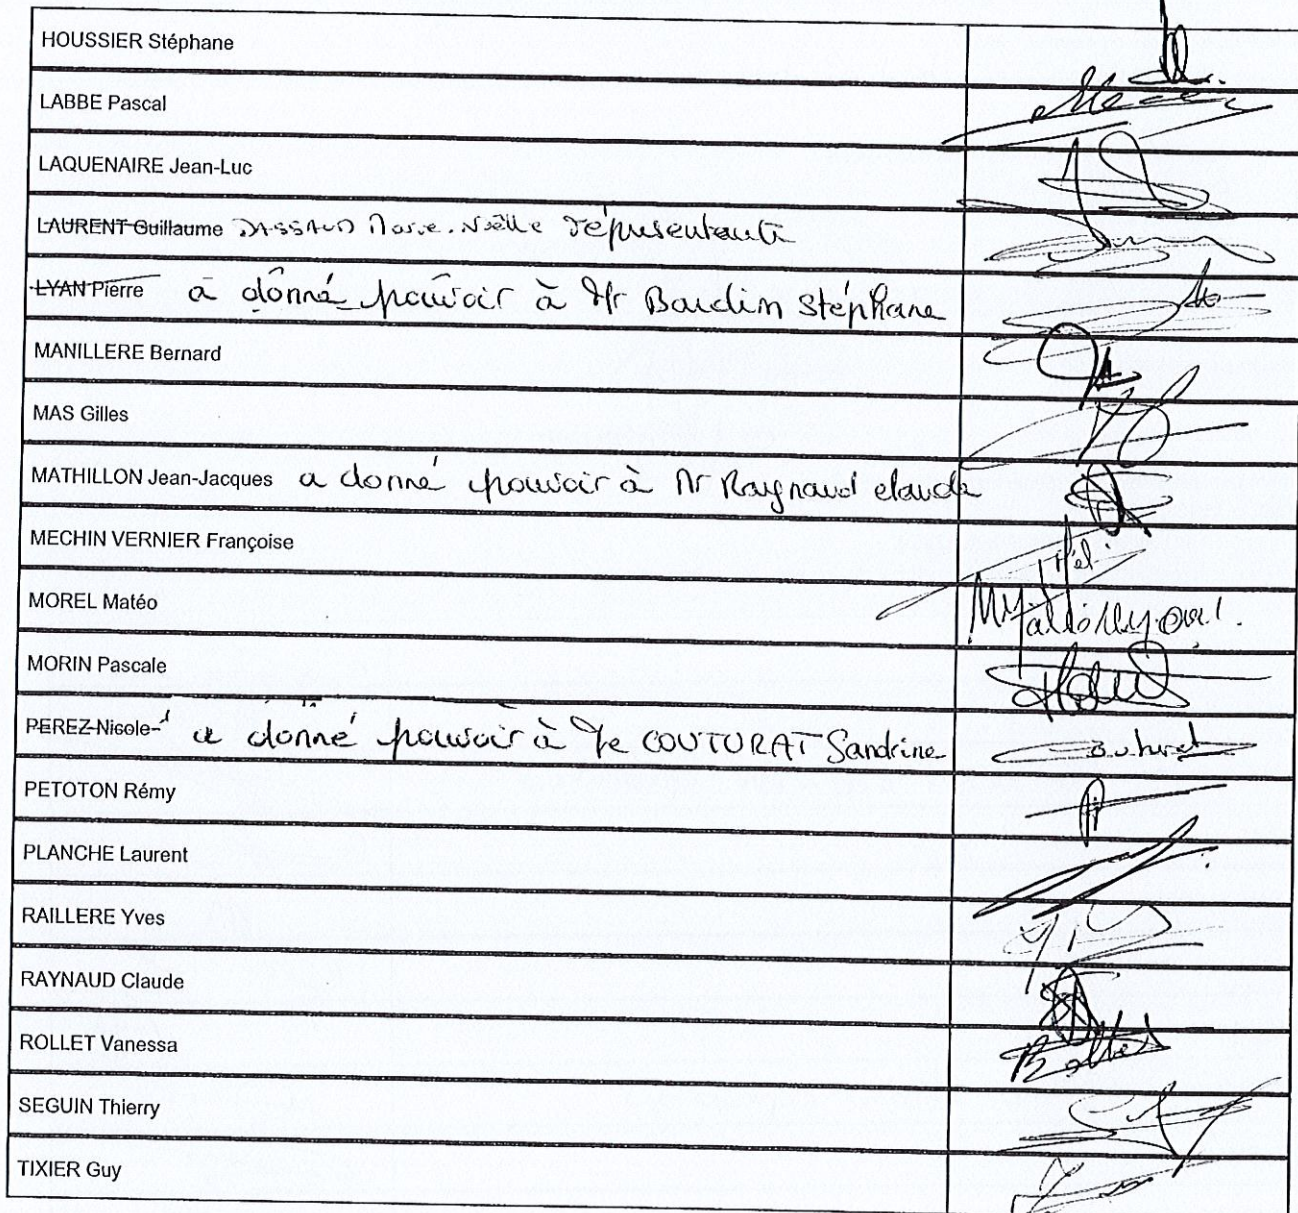 HOUSSIER Stéphane
LABBE Pascal
LAQUENAIRE Jean-Luc
LAURENT Guillaume DASSAUD Marie-Noëlle représentante
LYAN Pierre a donné pouvoir à Mr Baudin Stéphane
MANILLERE Bernard
MAS Gilles
MATHILLON Jean-Jacques a donné pouvoir à Mr Raynaud claude
MECHIN VERNIER Françoise
MOREL Matéo
MORIN Pascale
PEREZ Nicole a donné pouvoir à Me COUTURAT Sandrine
PETOTON Rémy
PLANCHE Laurent
RAILLERE Yves
RAYNAUD Claude
ROLLET Vanessa
SEGUIN Thierry
TIXIER Guy